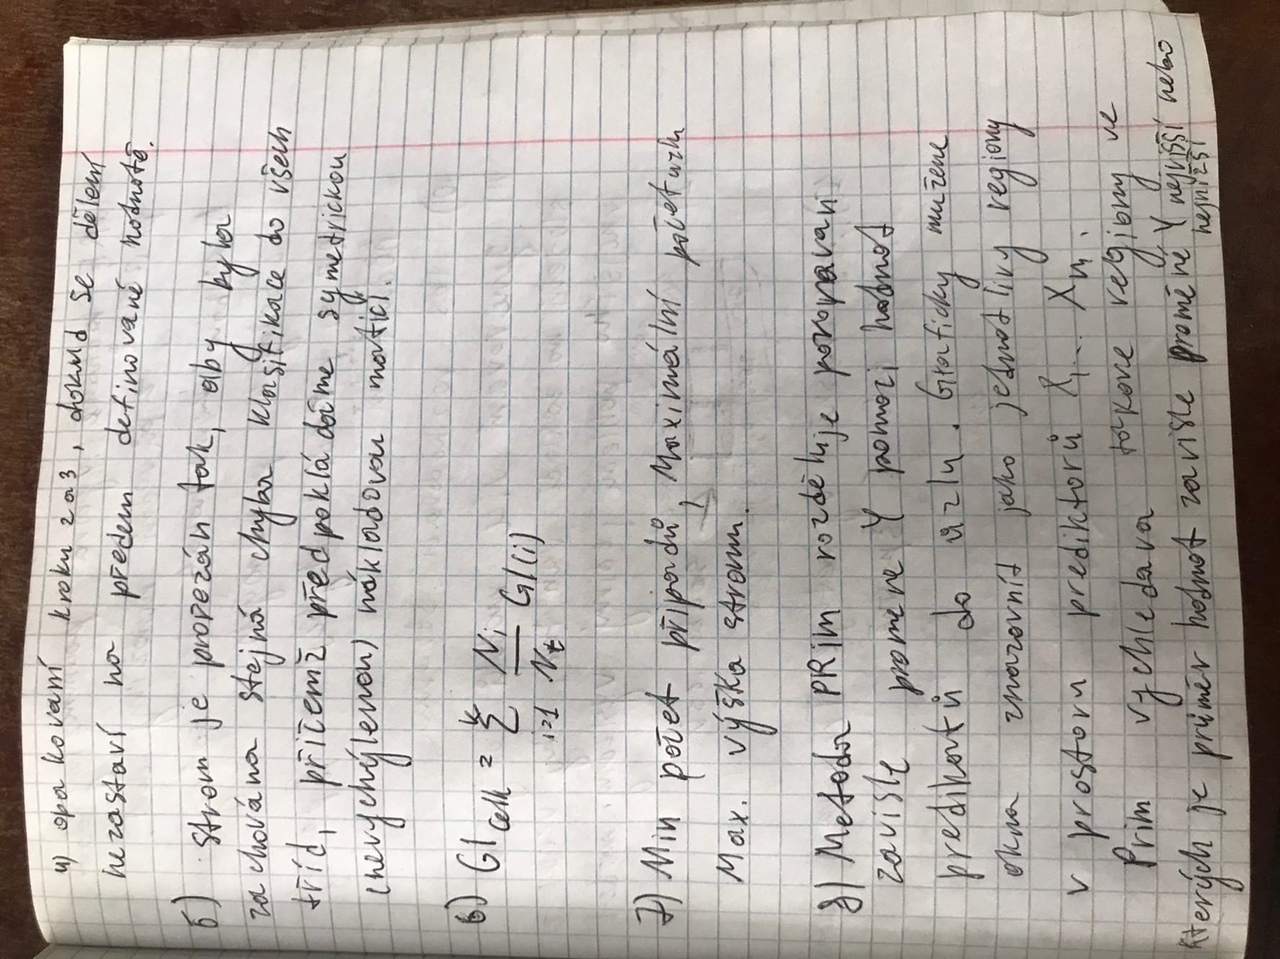 4) opakování kroku 2 a 3, dokud se dělení
nezastaví na předem definované hodnotě.
5) strom je prořezán tak, aby byla
zachována stejná chyba klasifikace do všech
tříd, přičemž předpokládáme symetrickou
(nevychýlenou) nákladovou maticí.
6) GI celk = k Σ i=1 Ni/Nt GI(i)
7) Min počet případů, Maximální počet uzlu
Max. výška stromu.
8) Metoda PRim rozděluje pozorování
zavisle promene Y pomoci hodnot
prediktorů do uzlu. Graficky mužeme
okna znazornit jako jednotlivy regiony
v prostoru prediktorů X1... Xm.
Prim vyhledava takove regiony ve
kterých je průměr hodnot zavisle proměne Y nejvišší nebo
nejnižší